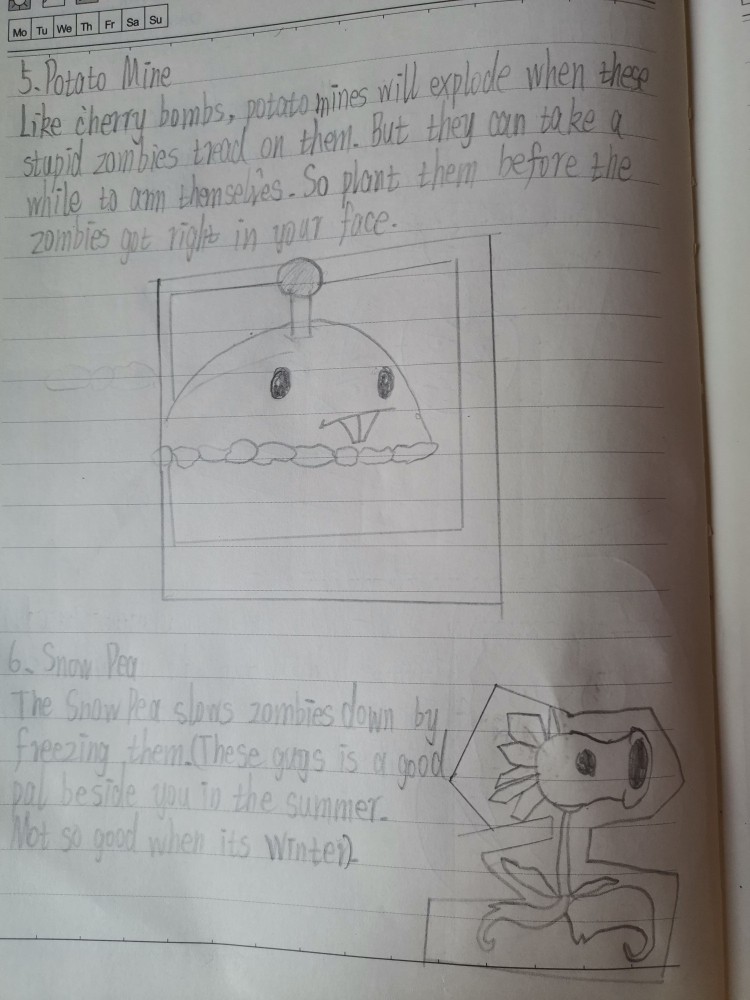 Mo Tu We Th Fr Sa Su
5. Potato Mine
Like cherry bombs, potato mines will explode when these
stupid zombies tread on them. But they can take a
while to arm themselves. So plant them before the
zombies got right in your face.
6. Snow Pea
The Snow Pea slows zombies down by
freezing them.(These guys is a good
pal beside you in the summer.
Not so good when its winter).